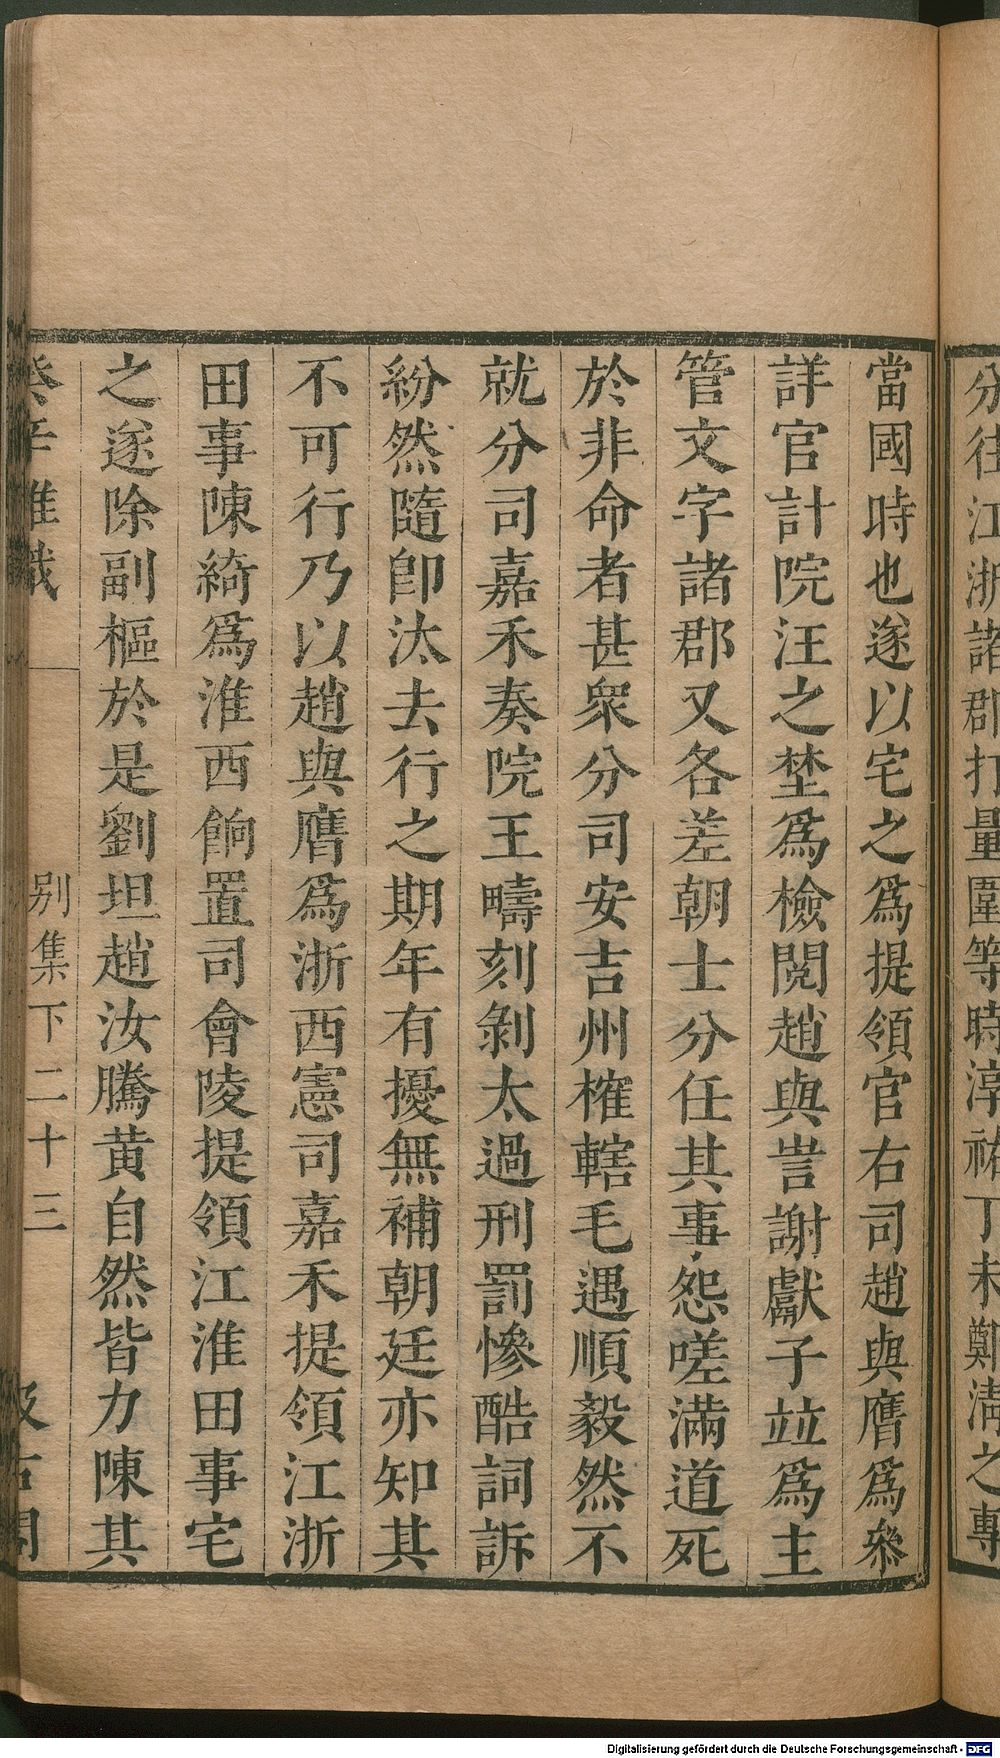 分往江浙諸郡打量圍等時淳祐丁未鄭清之專
當國時也遂以宅之爲提領官右司趙與膺爲參
詳官計院汪之埜爲檢閱趙與訔謝獻子竝爲主
管文字諸郡又各差朝士分任其事怨嗟滿道死
於非命者甚衆分司安吉州榷轄毛遇順毅然不
就分司嘉禾奏院王疇刻剝太過刑罰慘酷詞訴
紛然隨卽汰去行之期年有擾無補朝廷亦知其
不可行乃以趙與膺爲浙西憲司嘉禾提領江浙
田事陳綺爲淮西餉置司會陵提領江淮田事宅
之遂除副樞於是劉坦趙汝騰黄自然皆力陳其
癸辛雜識 别集下二十三 汲古閣
Digitalisierung gefördert durch die Deutsche Forschungsgemeinschaft - DFG